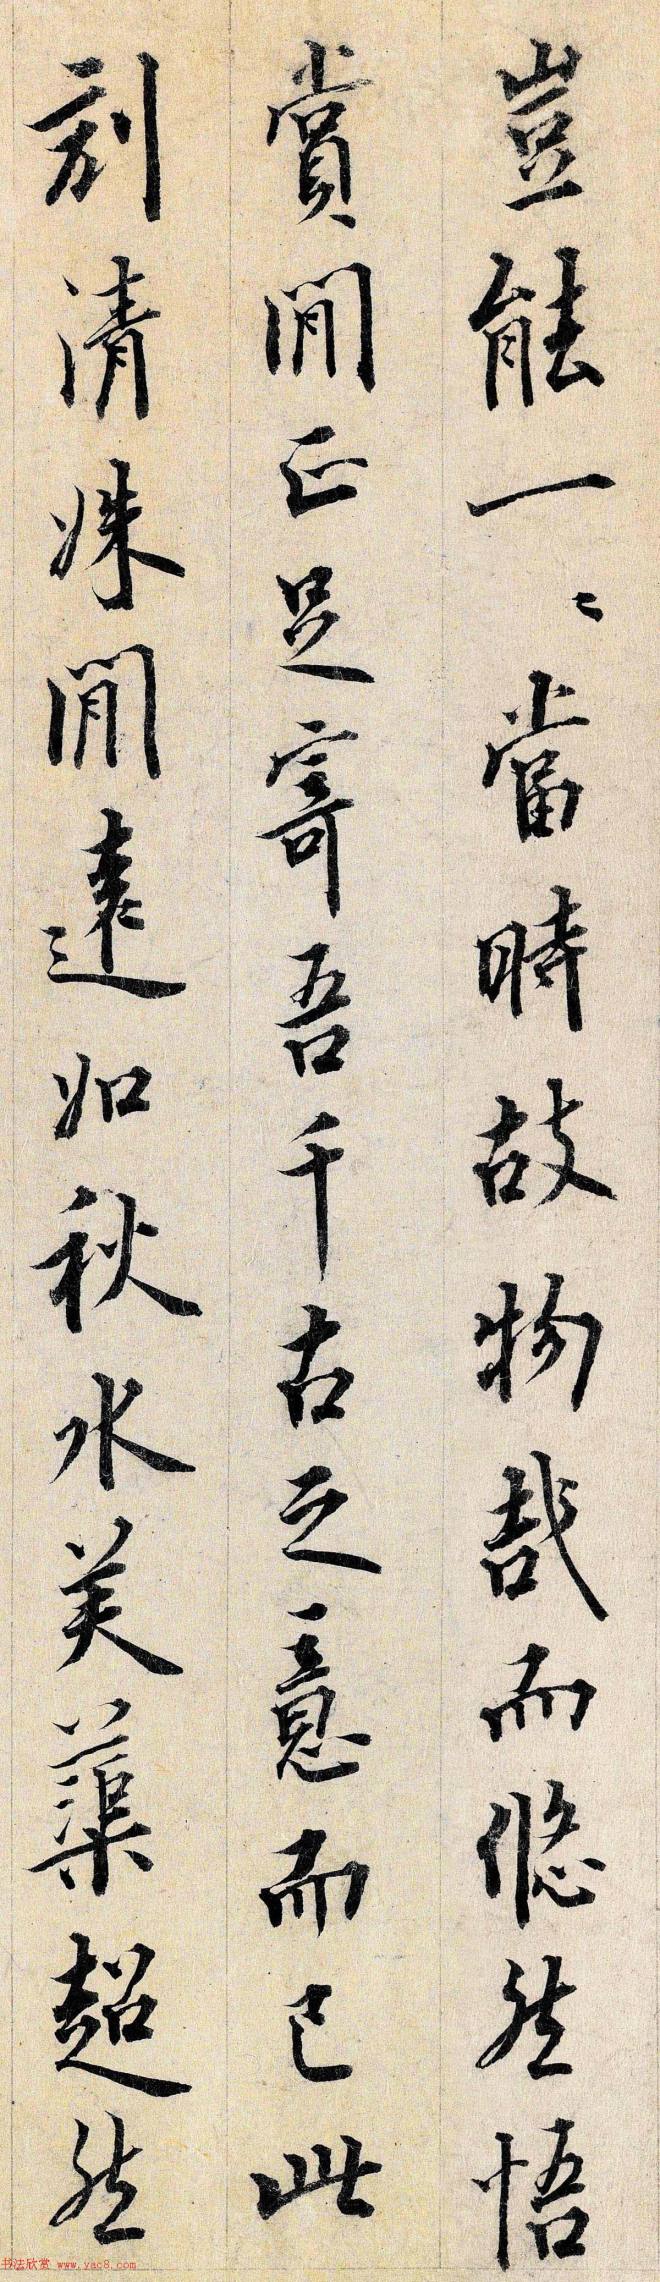 豈能一〻當時故物哉而悠然悟
賞間正足寄吾千古之意而已此
刻清姝閒遠如秋水芙蕖超然
书法欣赏 www.yac8.com